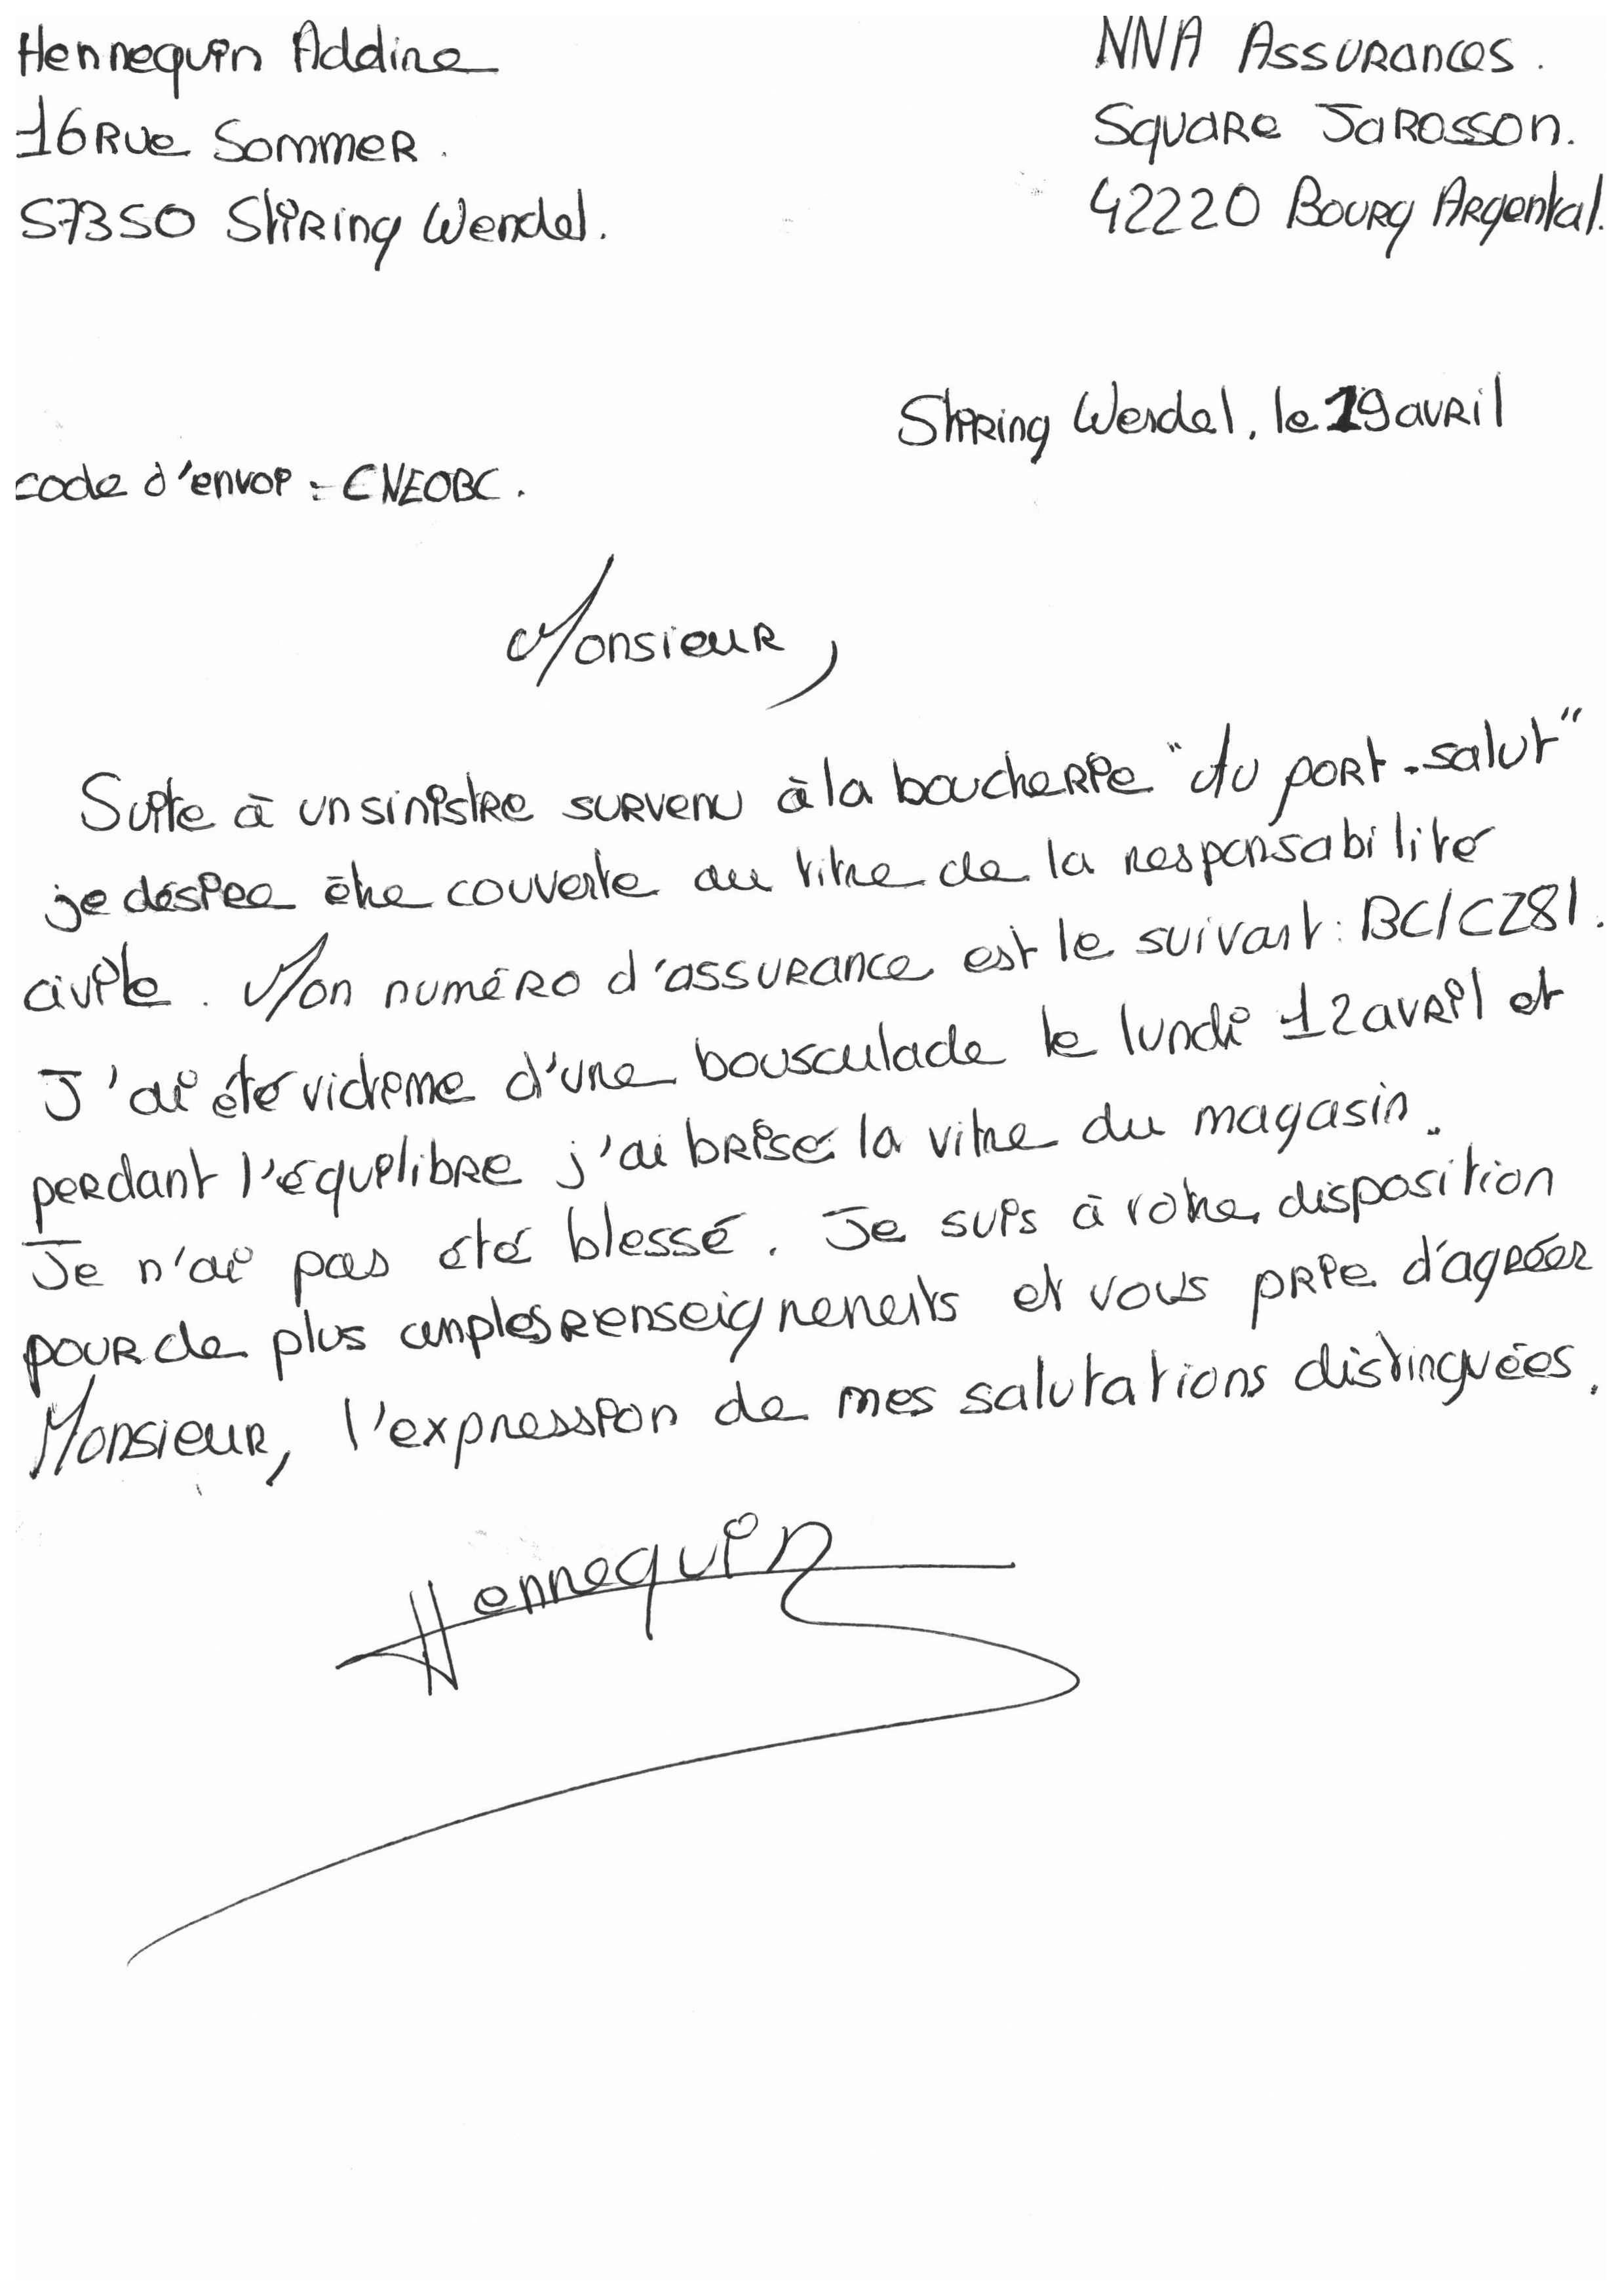 Hennequin Addine
16 Rue Sommer.
57350 Stiring Wendel.
NNA Assurances.
Square Jarosson.
42220 Bourg Argental.
Stiring Wendel, le 19 avril
code d'envoi : CNEOBC.
Monsieur,
Suite à un sinistre survenu à la boucherie "du port-salut"
je désire être couverte au titre de la responsabilité
civile. Mon numéro d'assurance est le suivant : BC/CZ81.
J'ai été victime d'une bousculade le lundi 12 avril et
perdant l'équilibre j'ai brisé la vitre du magasin.
Je n'ai pas été blessé. Je suis à votre disposition
pour de plus amples renseignements et vous prie d'agréer
Monsieur, l'expression de mes salutations distinguées.
Hennequin